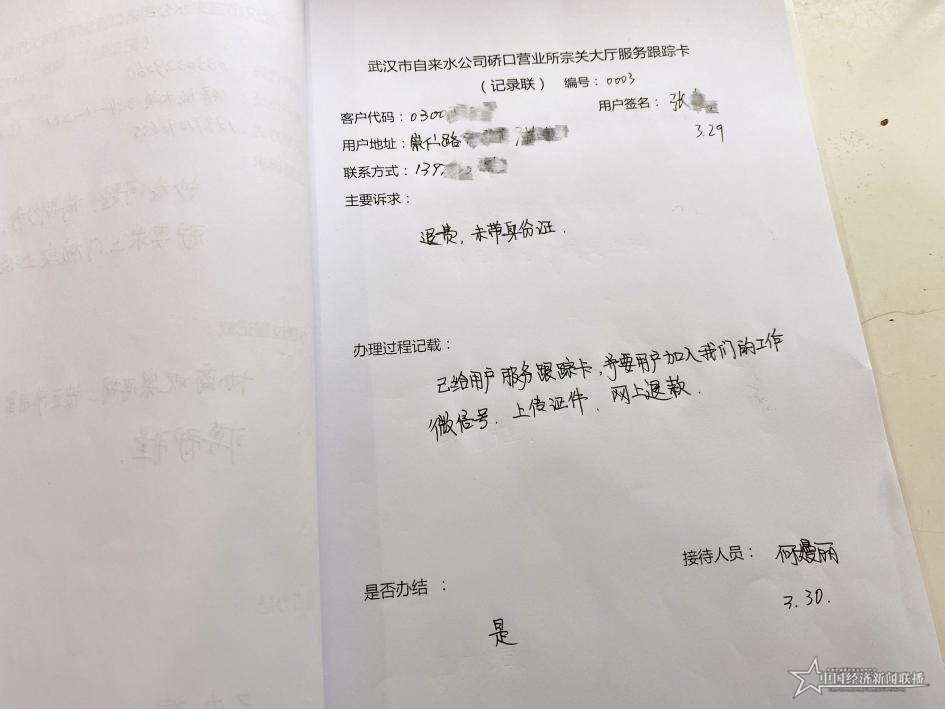 武汉市自来水公司硚口营业所宗关大厅服务跟踪卡
（记录联） 编号：0003
客户代码：0300 用户签名：张
用户地址：崇仁路 3.29
联系方式：139
主要诉求：
退费，未带身份证.
办理过程记载：
已给用户服务跟踪卡，予要用户加入我们的工作
微信号、上传证件、网上退款.
接待人员：何嫚丽
是否办结 ：
3.30.
是
中国经济新闻联播